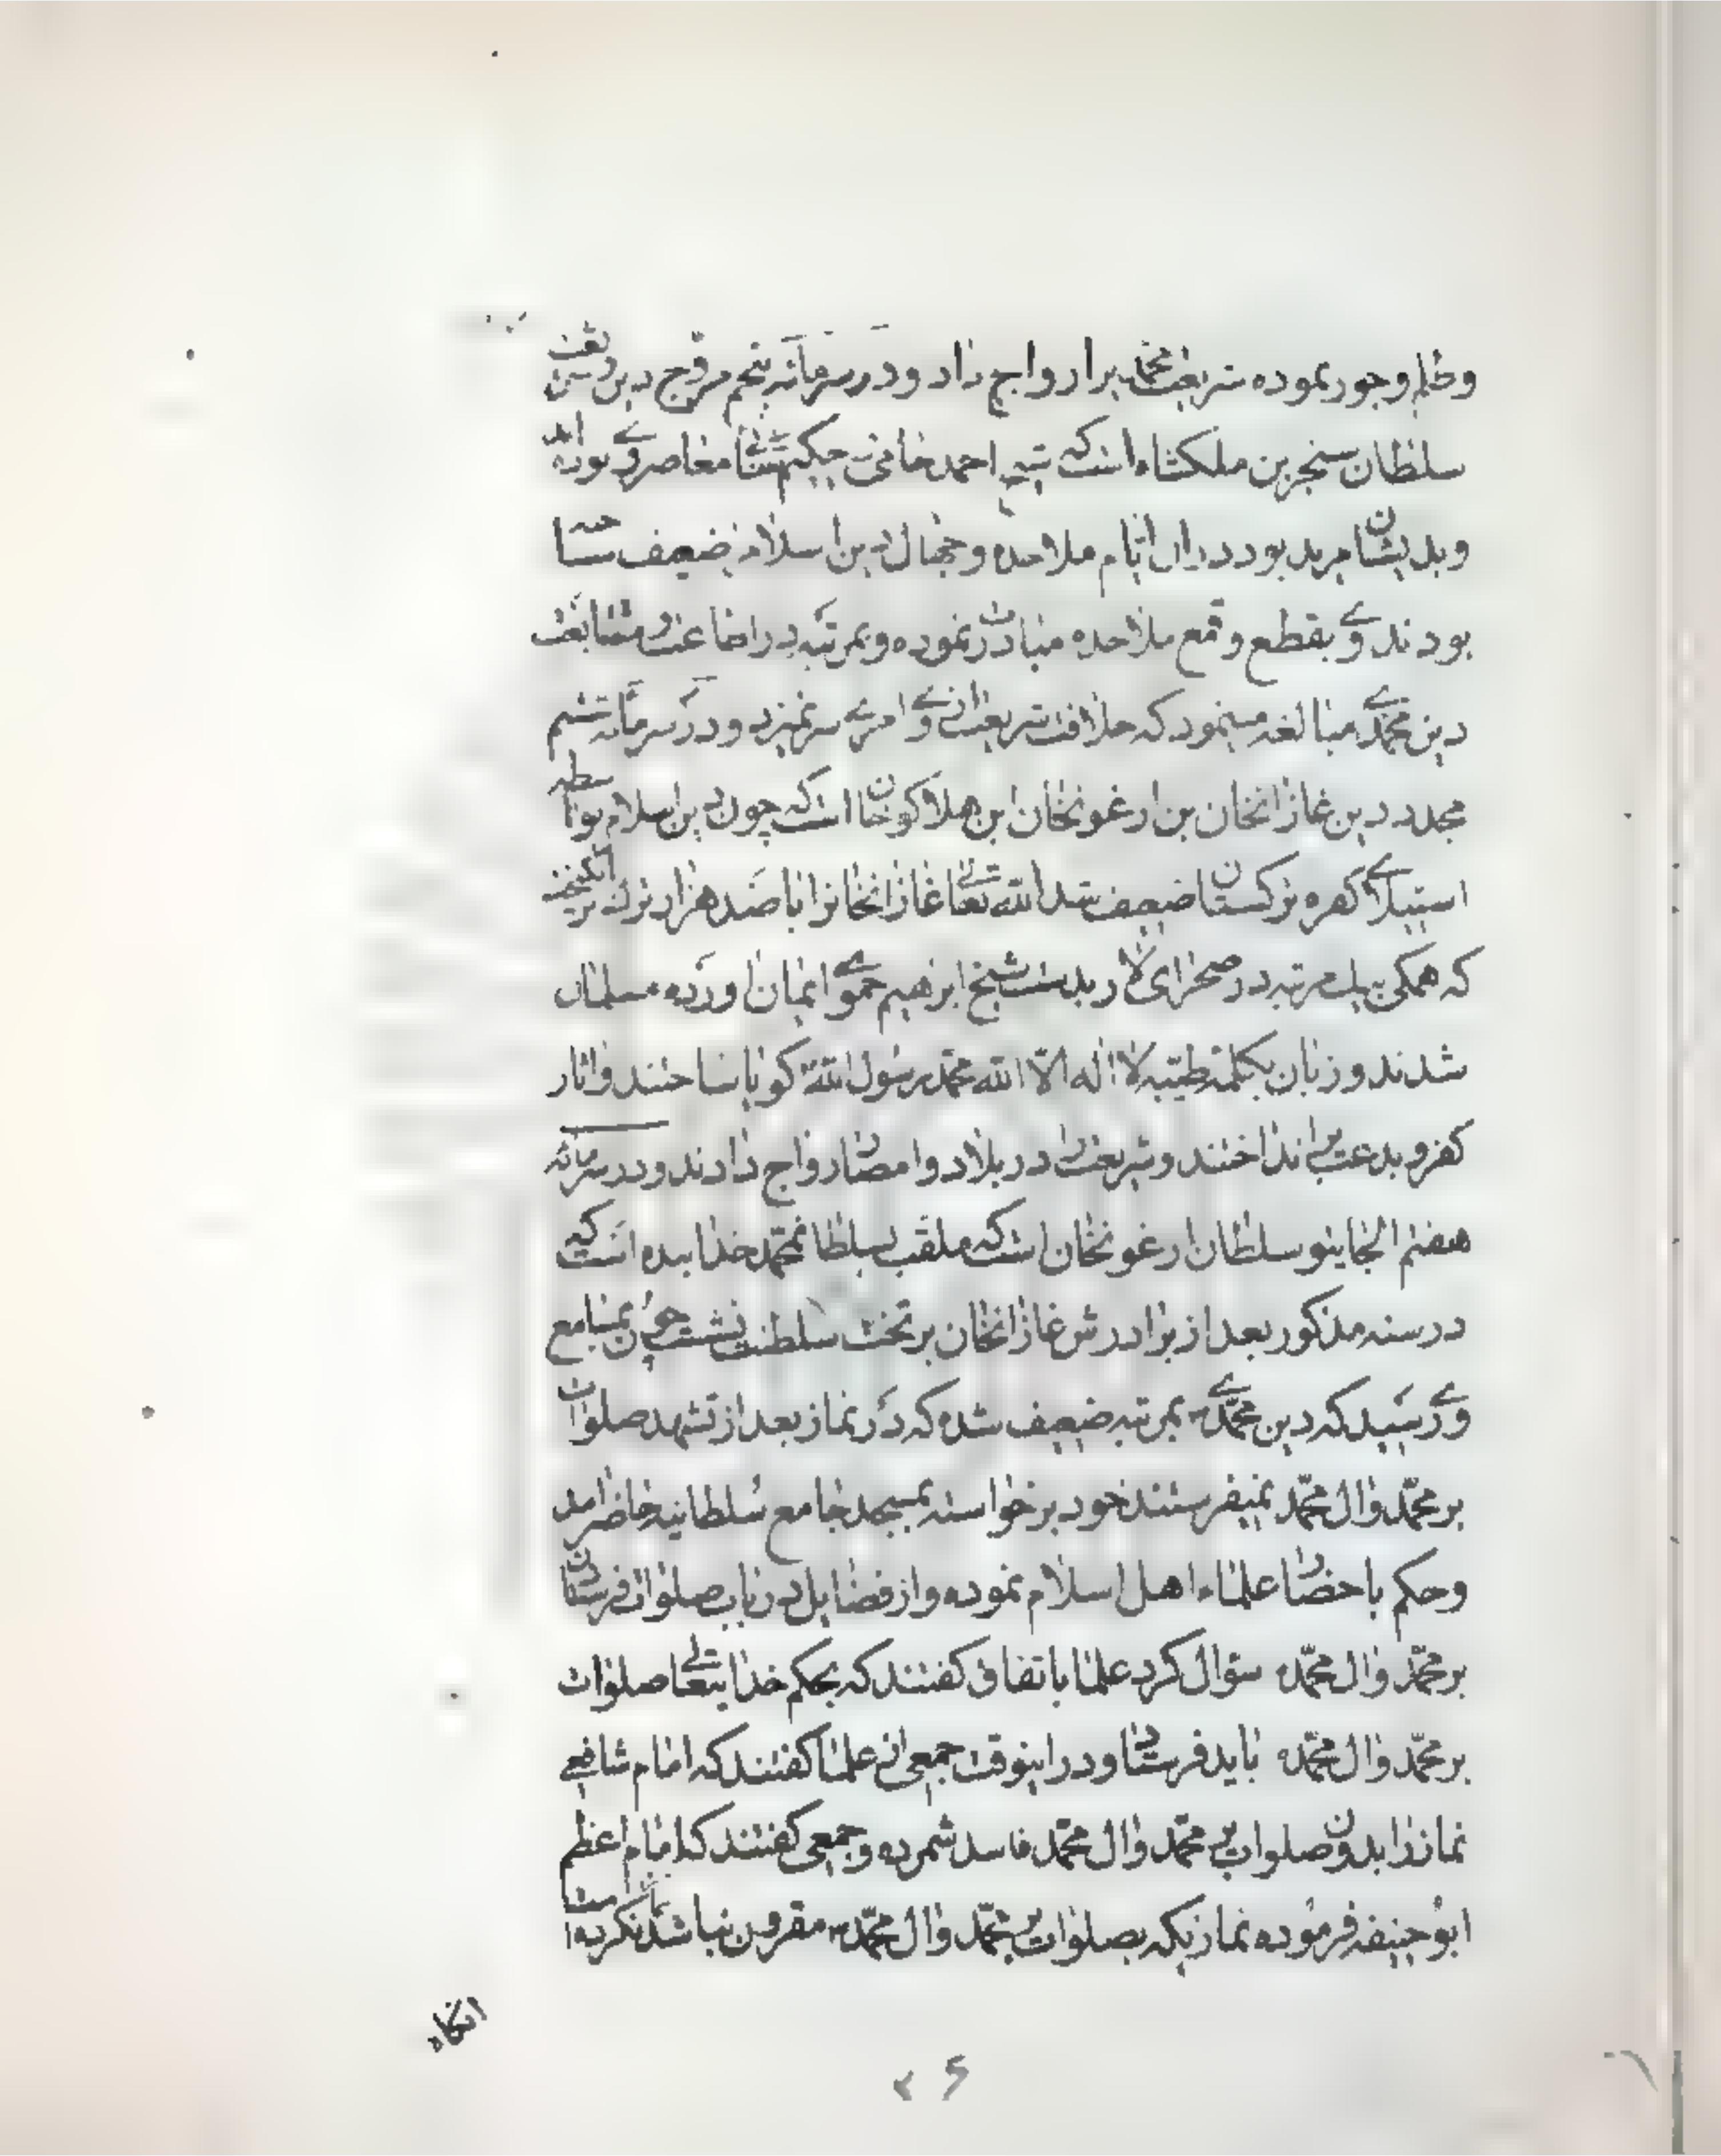 وظلم و جور نموده شریعت محمدیرا رواج داد و در سر مائه پنجم مروج دین و شریعت
سلطان سنجر بن ملکشاه است که شیخ احمد جامی و حکیم سنائی معاصر وی بوده اند
و بدیشان مرید بود در آن ایام ملاحده و جهال دین اسلام ضعیف ساخته
بودند وی بقطع و قمع ملاحده مبادرت نموده و بمرتبه در اطاعت و متابعت
دین محمدی مبالغه مینمود که خلاف شریعت از وی امری سر نمیزد و در سر مائه ششم
مجدد دین غازانخان بن ارغونخان ابن هلاکوخان است که چون دین اسلام بواسطه
استیلای کفره ترکستان ضعیف شد الله تعالی غازانخانرا با صد هزار ترک بر انگیخت
که همگی بیک مرتبه در صحرای لار بدست شیخ ابرهیم حموی ایمان اورده مسلمان
شدند و زبان بکلمه طیبه لا اله الا الله محمد رسول الله گویا ساختند و اثار
کفر و بدعت بر انداختند و شریعت را در بلاد و امصار رواج دادند و در سر مائه
هفتم الجایتو سلطان ارغونخان است که ملقب بسلطان محمد خدابنده است که
در سنه مذکور بعد از برادرش غازانخان بر تخت سلطنت نشست چون بمسامع
وی رسید که دین محمدی بمرتبه ضعیف شده که در نماز بعد از تشهد صلوات
بر محمد وال محمد نمیفرستند خود برخواسته بمسجد جامع سلطانیه حاضر امد
و حکم باحضار علماء اهل اسلام نموده و از فضایل در باب صلوات فرستادن
بر محمد وال محمد سؤال کرد علما باتفاق گفتند که بحکم خدایتعالی صلوات
بر محمد وال محمد باید فرستاد و در اینوقت جمعی از علما گفتند که امام شافعی
نماز را بدون صلوات بر محمد وال محمد فاسد شمرده و جمعی گفتند که امام اعظم
ابو حنیفه فرموده نمازیکه بصلوات بر محمد وال محمد مقرون نباشد نکرده است
انگاه
۲۶